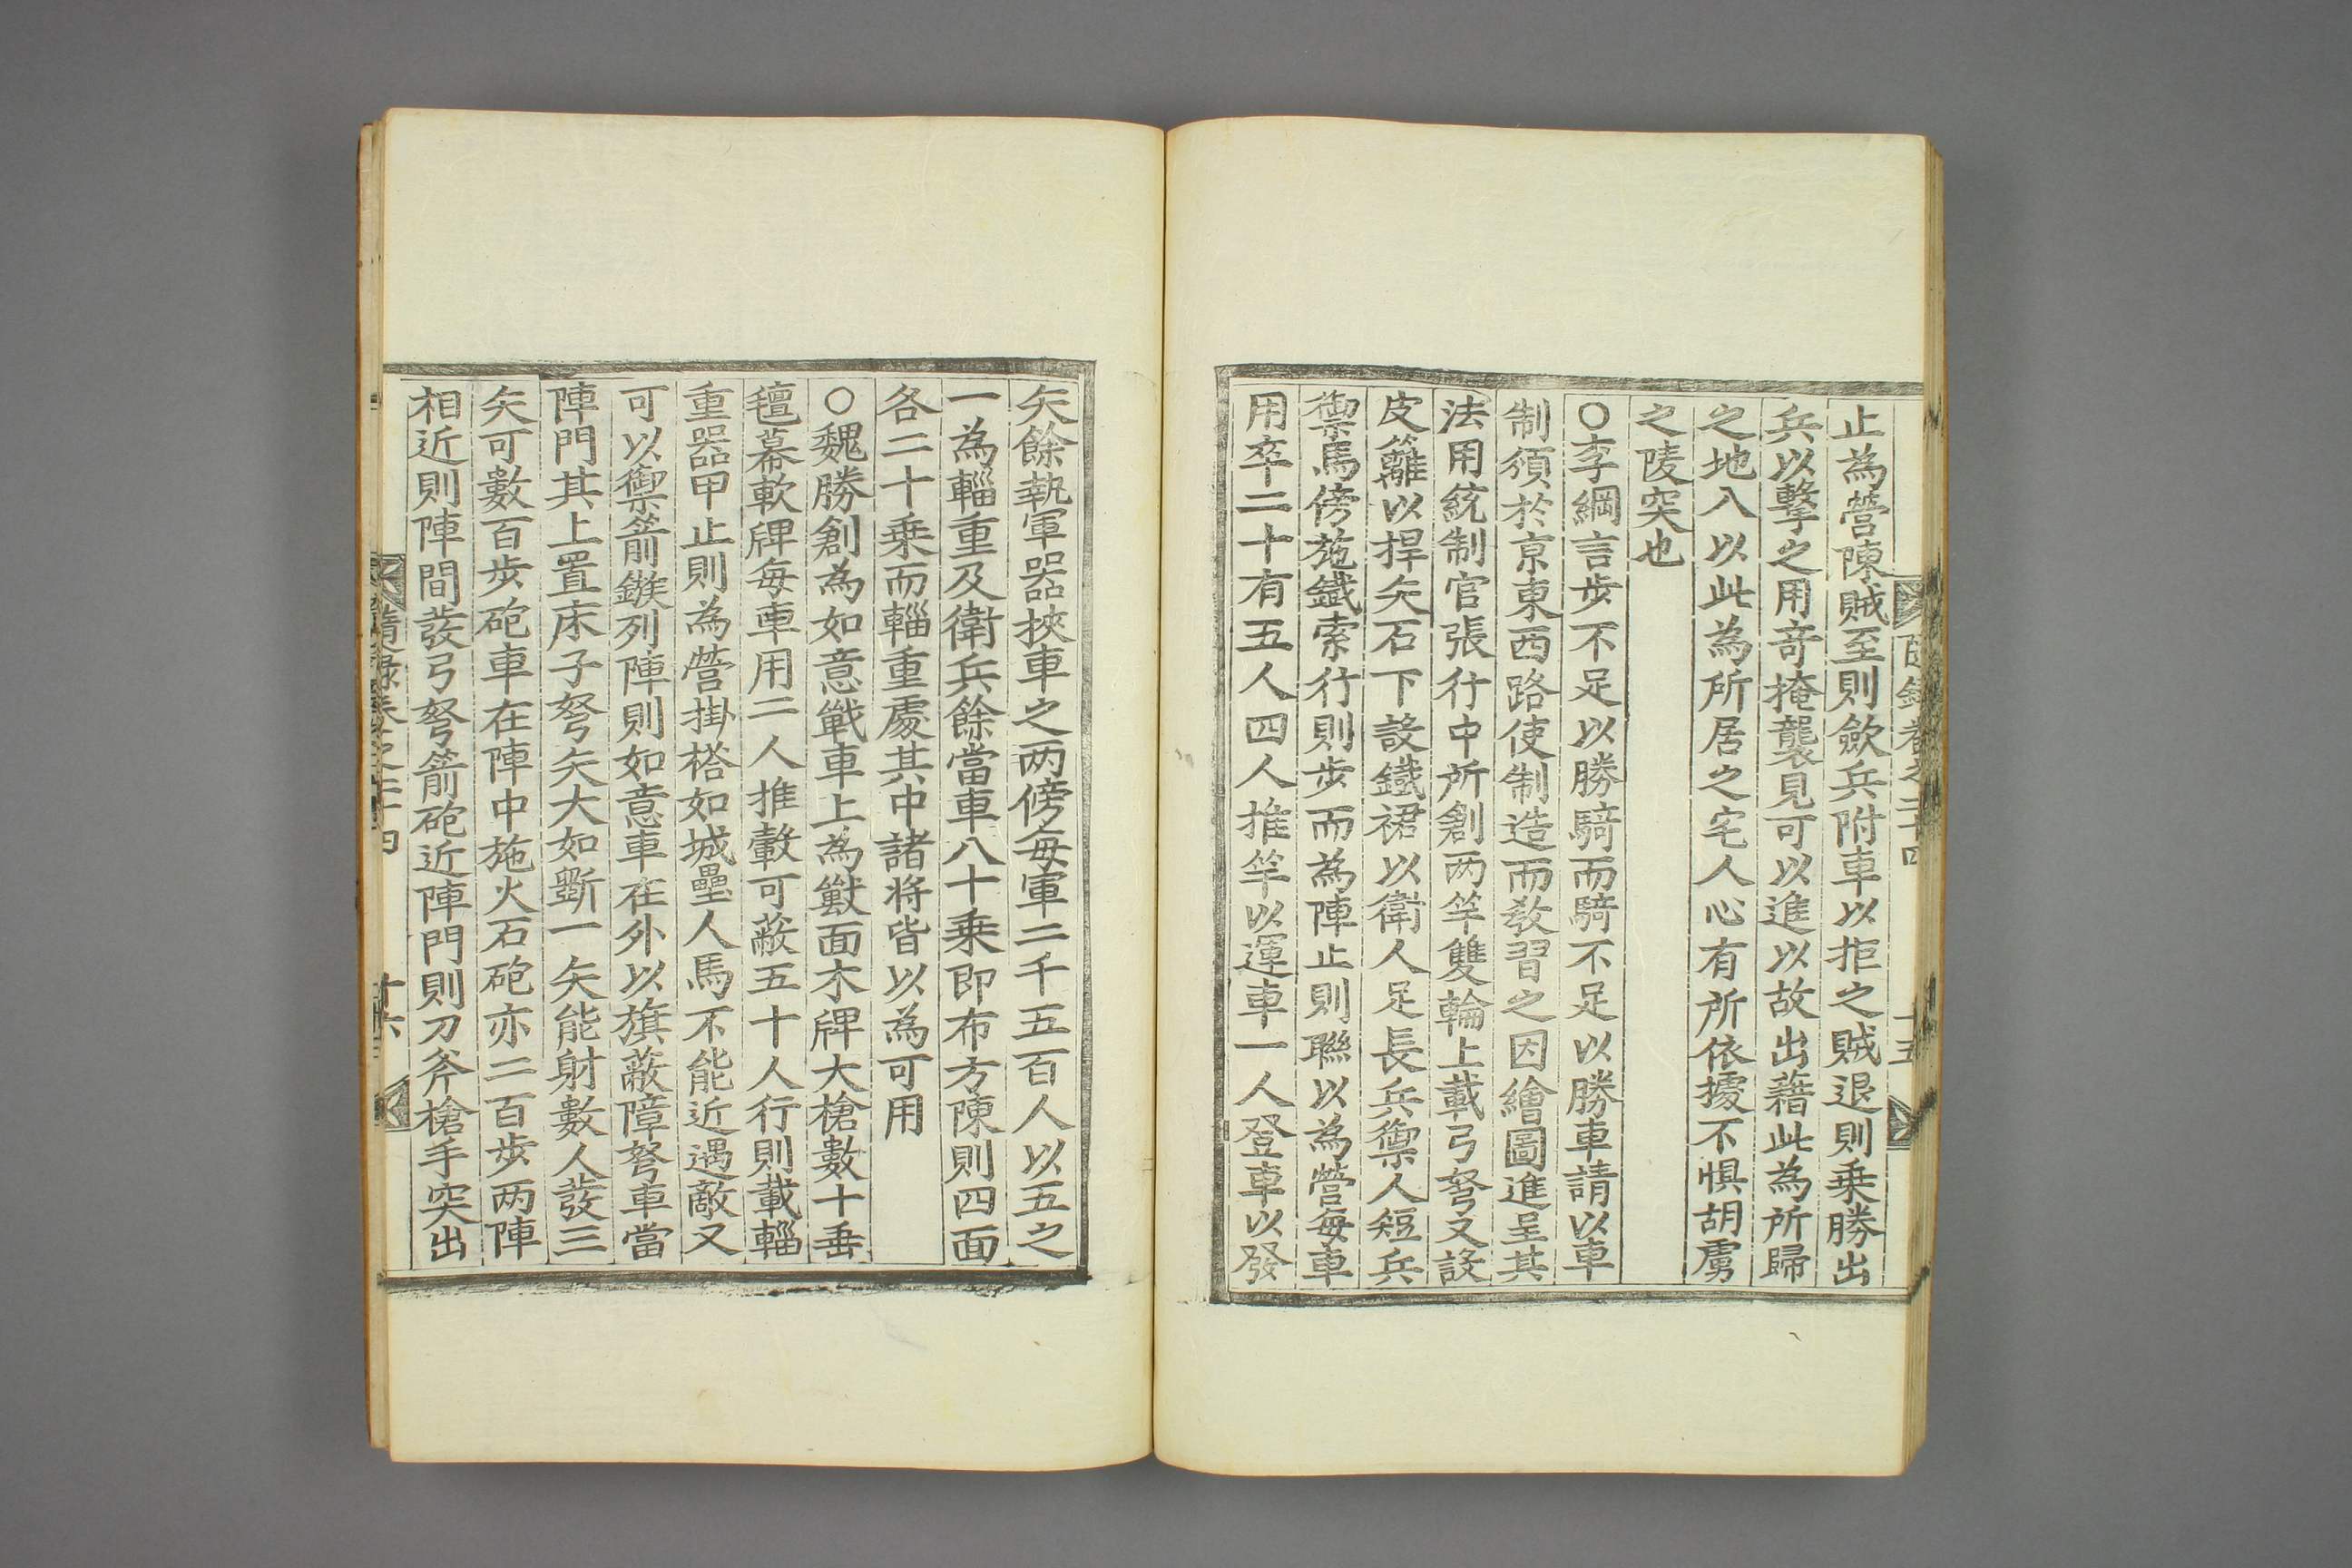 止為營陳賊至則斂兵附車以拒之賊退則乗勝出
兵以擊之用竒掩襲見可以進以故出藉此為所歸
之地八以此為所居之宅人心有所依據不惧胡虜
之陵突也
○李綱言步不足以勝騎而騎不足以勝車請以車
制須於京東西路使制造而教習之因繪圖進呈其
法用統制官張行中所創两竿雙輪上載弓弩又設
皮籬以捍矢石下設鐵裙以衛人足長兵禦人短兵
禦馬傍施鐵索行則步而為陣止則聯以為營每車
用卒二十有五人四人推竿以運車一人登車以發
矢餘執軍器挾車之两傍每軍二千五百人以五之
一為輜重及衛兵餘當車八十乗即布方陳則四面
各二十乗而輜重處其中諸将皆以為可用
○魏勝創為如意戰車上為獸面木牌大槍數十垂
氊幕軟牌每車用二人推轂可蔽五十人行則載輜
重器甲止則為營掛搭如城壘人馬不能近遇敵又
可以禦箭鏃列陣則如意車在外以旗蔽障弩車當
陣門其上置床子弩矢大如鑿一矢能射數人發三
矢可數百步砲車在陣中施火石砲亦二百步两陣
相近則陣間發弓弩箭砲近陣門則刀斧槍手突出
卷之二十四
十六